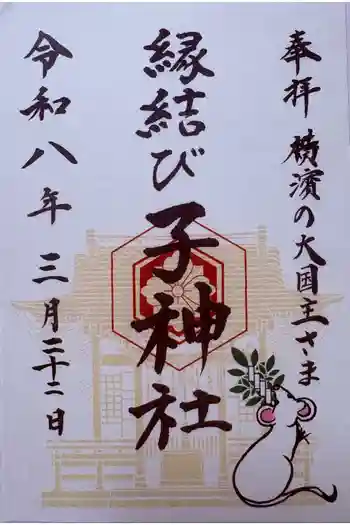 奉拝 横濱の大国主さま
縁結び子神社
令和八年三月二十二日